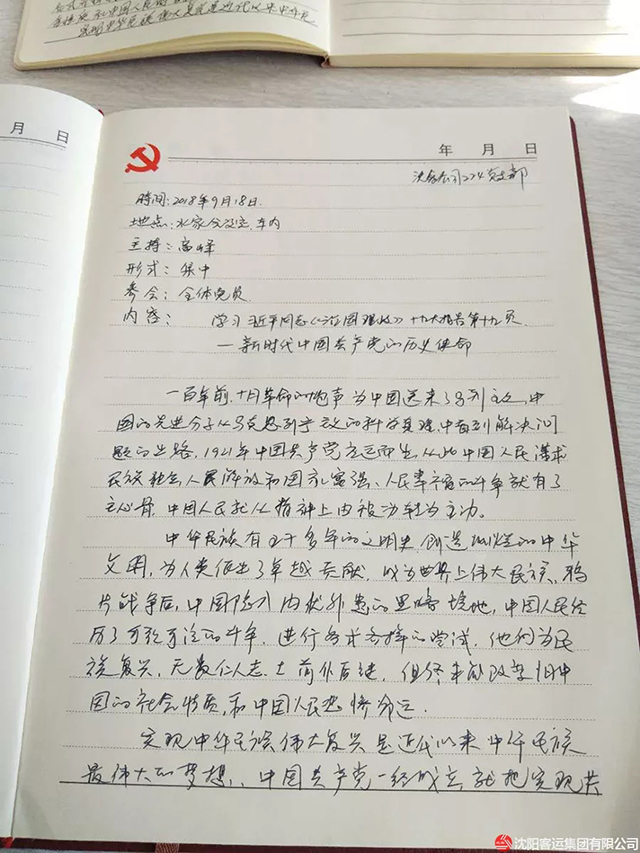 实现中华民族伟大复兴是近代以来中华民
月 日
年 月 日
时间:2018年9月18日.
主持:高峰
形式:集中
参会:全体党员
内容: 学习习近平同志《治国理政》十九大报告第十九页.
—新时代中国共产党的历史使命
一百年前,十月革命的炮声为中国送来了马列主义,中
国的先进分子从马克思列宁主义的科学真理中看到解决问
题的出路.1921年中国共产党应运而生.从此中国人民谋求
民族独立,人民解放和国家富强、人民幸福的斗争就有了
主心骨,中国人民就从精神上由被动转为主动。
中华民族有五千多年的文明史,创造灿烂的中华
文明,为人类作出了卓越贡献,成为世界上伟大民族、鸦
片战争后,中国陷入内忧外患的黑暗境地,中国人民经
历了可歌可泣的斗争,进行各式各样的尝试,他们为民
族复兴,无数仁人志士前仆后继,但终未能改变旧中
国的社会性质,和中国人民悲惨命运.
实现中华民族伟大复兴是近代以来中华民族
最伟大的梦想,中国共产党一经成立就把实现共
沈阳客运集团有限公司